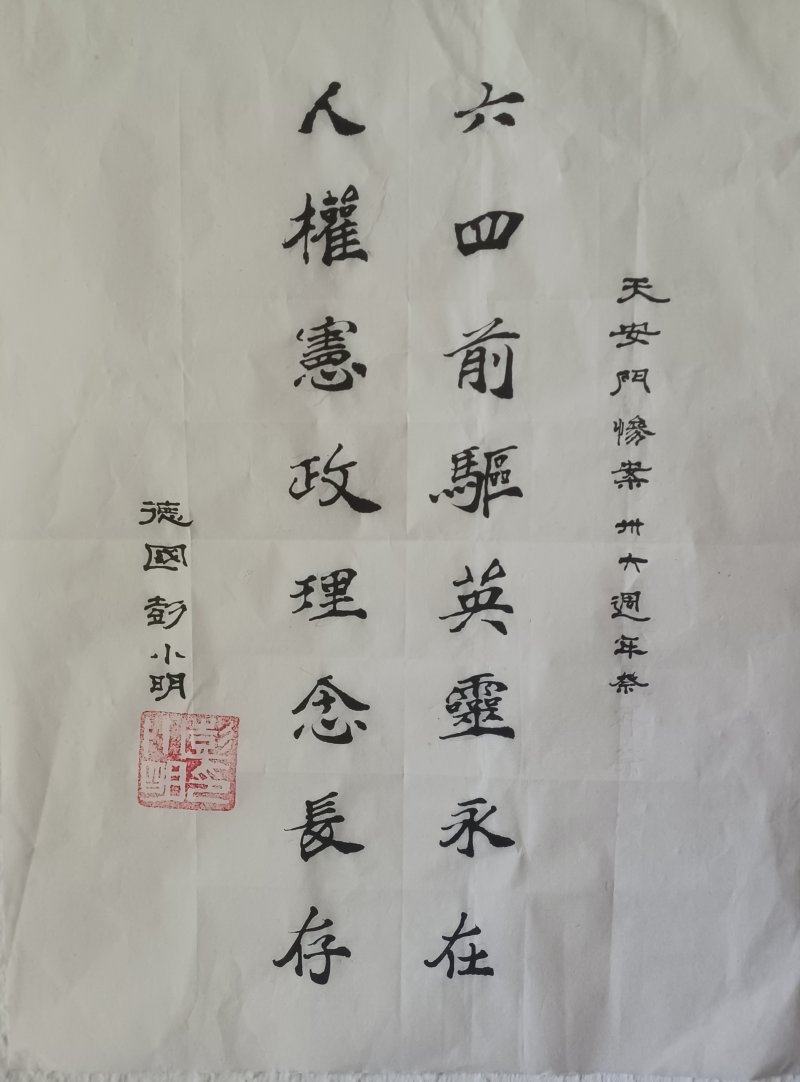 天安門慘案卅六週年祭
六四前驅英靈永在
人權憲政理念長存
德國彭小明
彭小明印